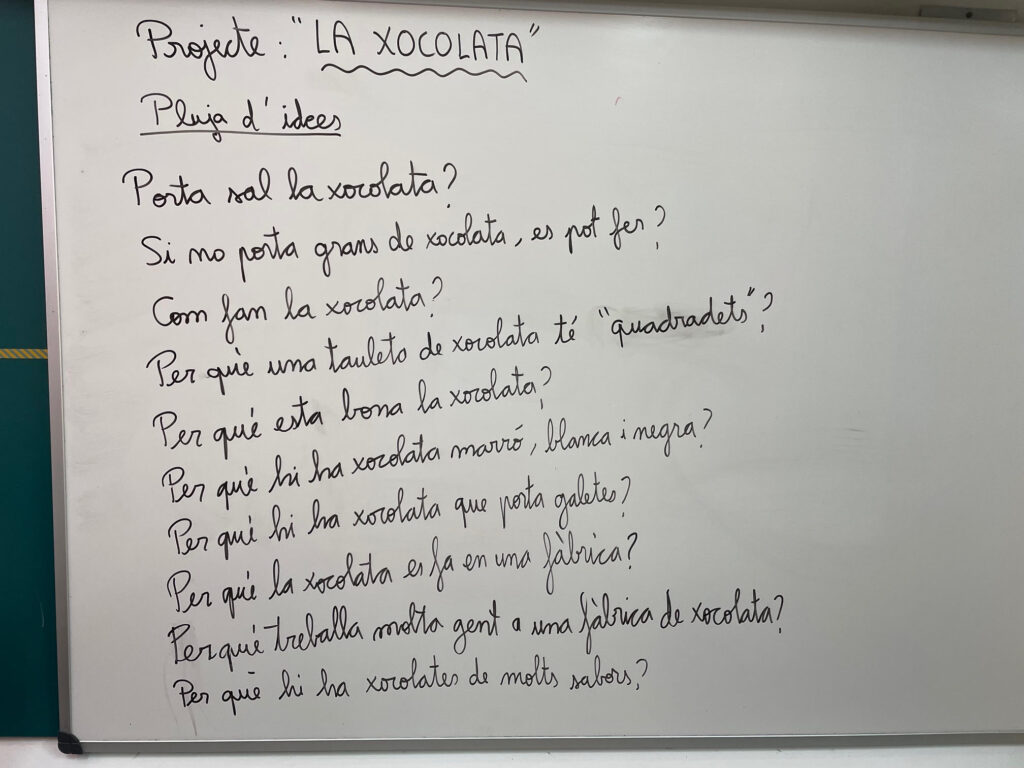 Projecte: "LA XOCOLATA"
Pluja d'idees
Porta sal la xocolata?
Si no porta grans de xocolata, es pot fer?
Com fan la xocolata?
Per què una tauleto de xocolata té "quadradets"?
Per qué esta bona la xocolata?
Per què hi ha xocolata marró, blanca i negra?
Per què hi ha xocolata que porta galetes?
Per què la xocolata es fa en una fàbrica?
Perquè treballa molta gent a una fàbrica de xocolata?
Per què hi ha xocolates de molts sabors?